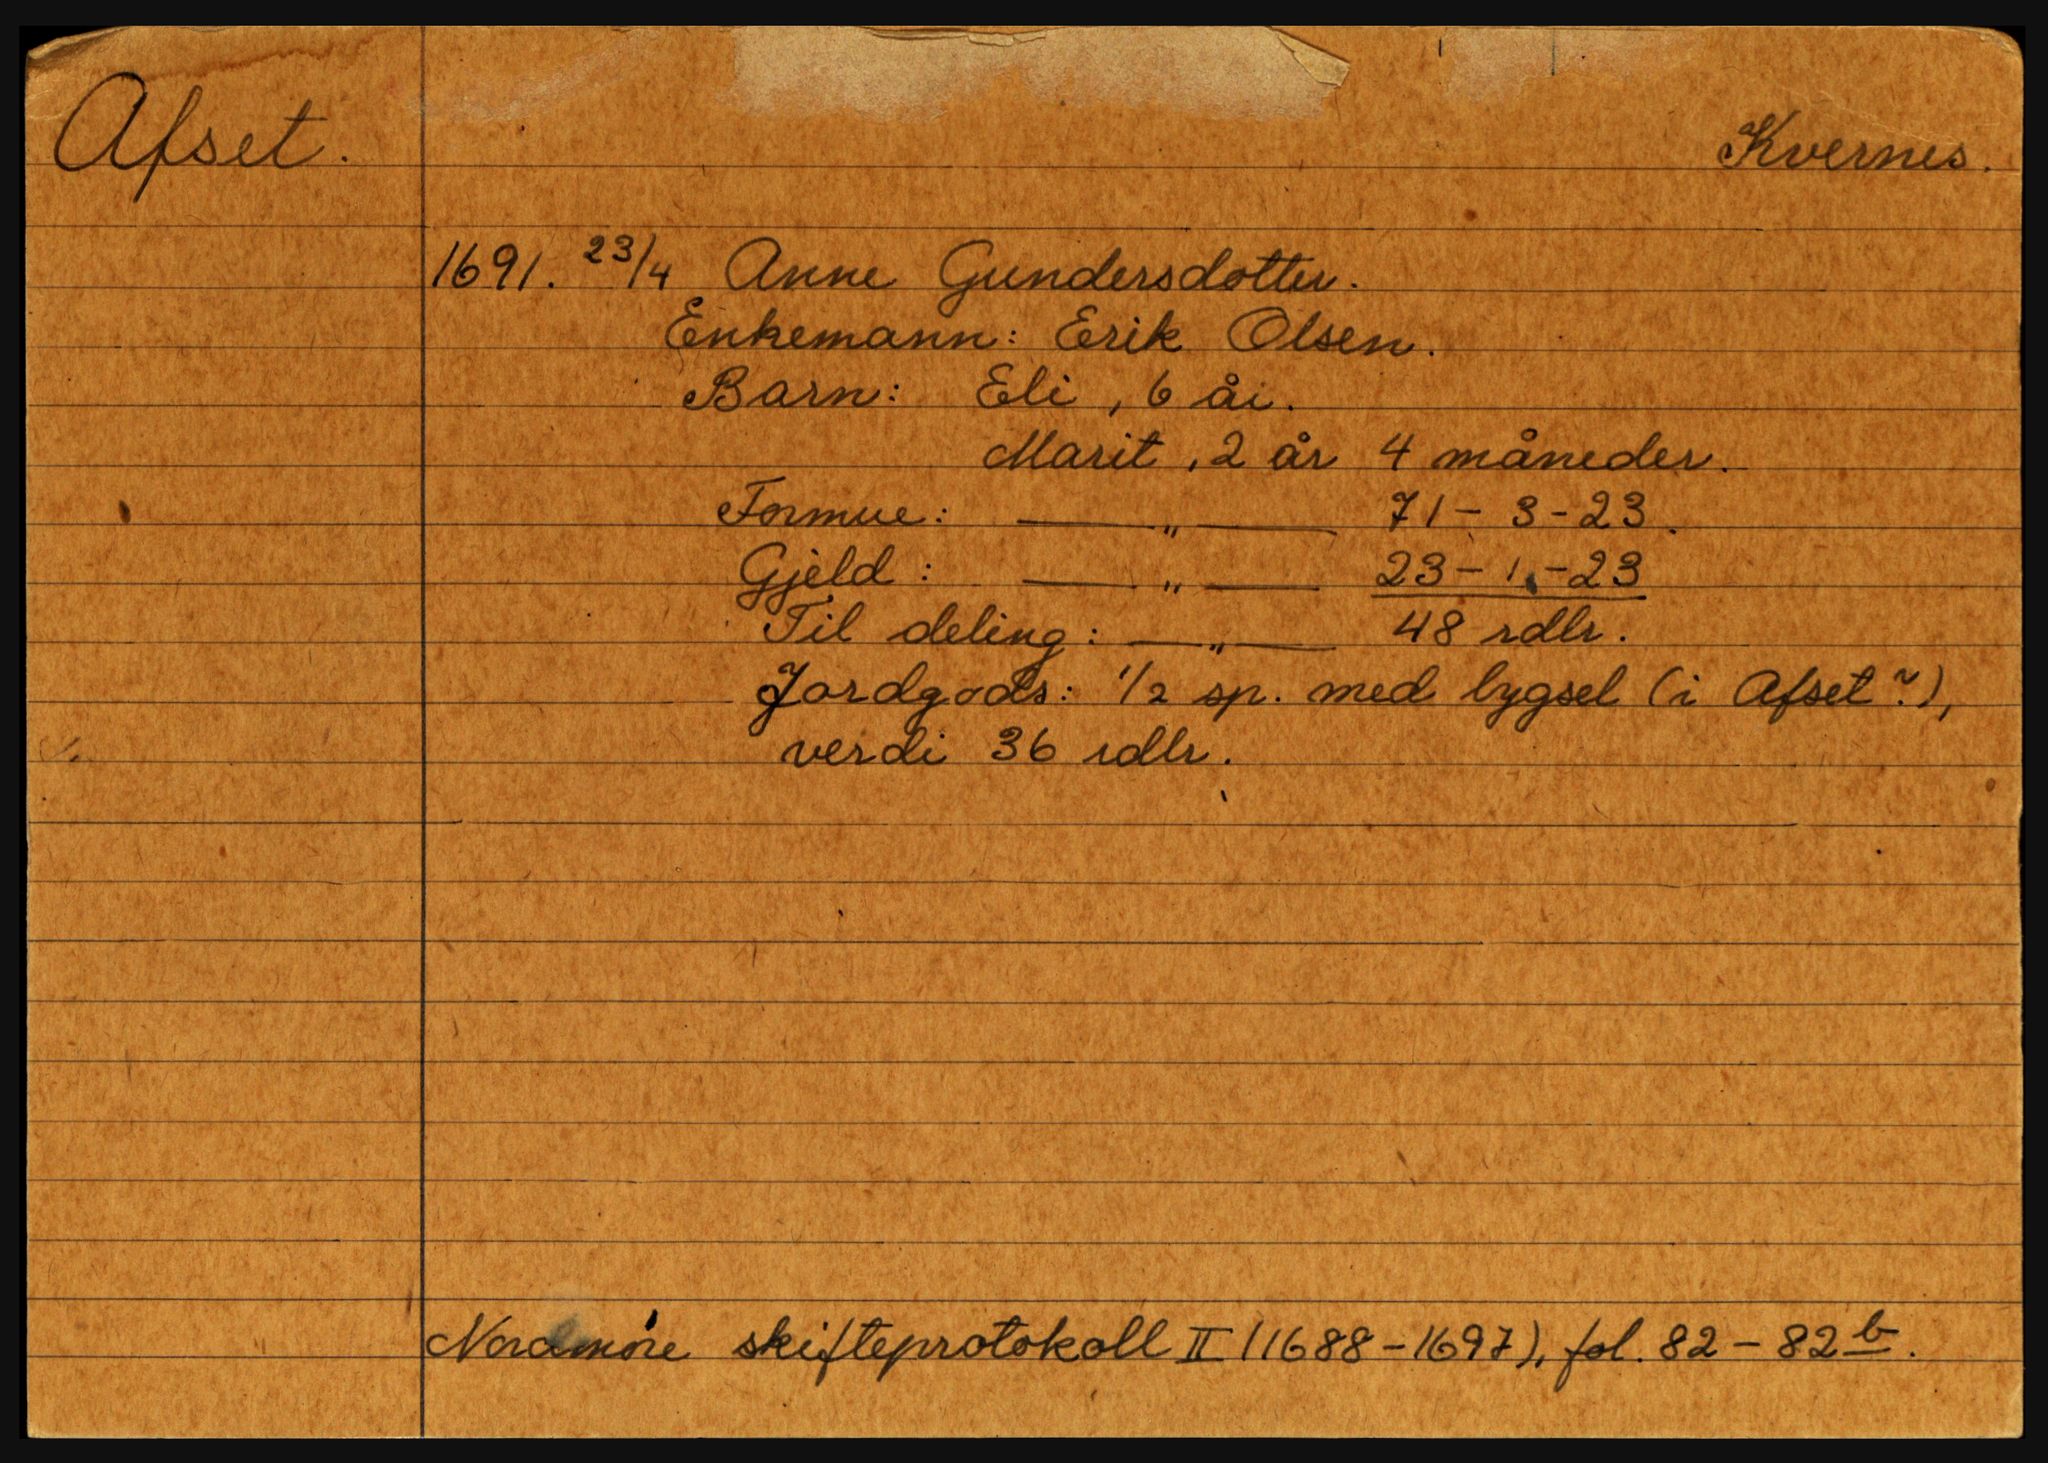 Afset.
Kvernes.
1691. 23/4 Anne Gundersdotter.
Enkemann: Erik Olsen.
Barn: Eli, 6 år.
Marit, 2 år 4 måneder.
Formue: —„— 71-3-23.
Gjeld: —„— 23-1-23
Til deling: —„— 48 rdlr.
Jordgods: 1/2 sp. med bygsel (i Afset?),
verdi 36 rdlr.
Nordmøre skifteprotokoll II (1688-1697), fol. 82-82b.